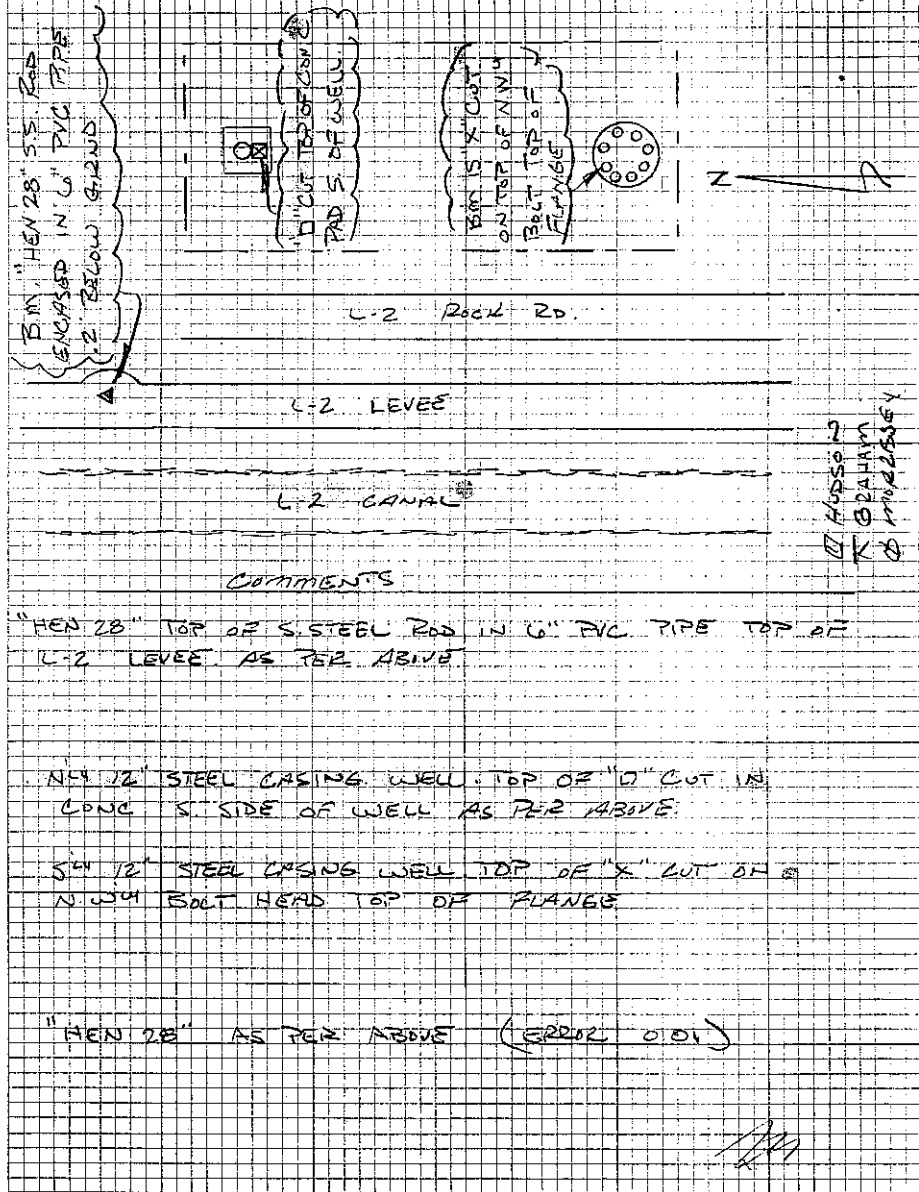 BM. "HEN 28" SS ROD
ENCASED IN 6" PVC PIPE
.2 BELOW GRND
"□" CUT TOP OF CONC
PAD S. OF WELL
BM IS "X" CUT
ON TOP OF NWly
BOLT TOP OF
FLANGE
N
L-2 ROCK RD.
L-2 LEVEE
L-2 CANAL
HUDSON
GRAHAM
MORRISSEY
COMMENTS
"HEN 28" TOP OF S.STEEL ROD IN 6" PVC PIPE TOP OF
L-2 LEVEE AS PER ABOVE
N'LY 12" STEEL CASING WELL. TOP OF "□" CUT IN
CONC S. SIDE OF WELL AS PER ABOVE.
S'LY 12" STEEL CASING WELL TOP OF "X" CUT ON
N.W'LY BOLT HEAD TOP OF FLANGE
"HEN 28" AS PER ABOVE (ERROR 0.01)